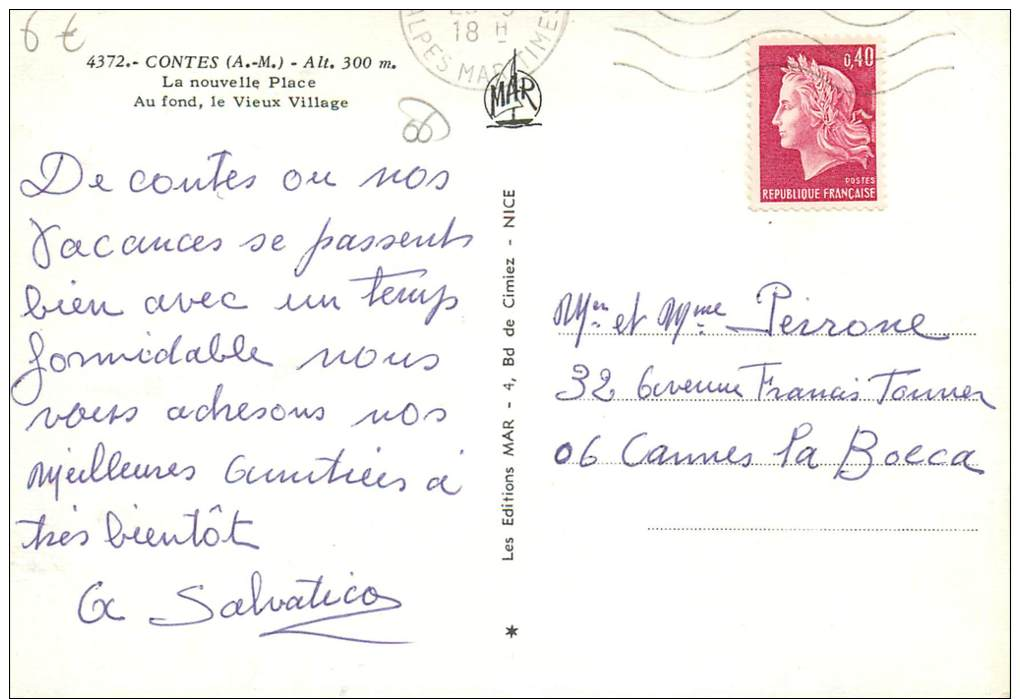 6 €
4372.- CONTES (A.-M.) - Alt. 300 m.
La nouvelle Place
Au fond, le Vieux Village
18 H
ALPES MARITIMES
MAR
0,40
POSTES
REPUBLIQUE FRANÇAISE
De contes ou nos
Vacances se passent
bien avec un temps
formidable nous
vous adresons nos
meilleures amitiées a
très bientôt
Salvatico
Les Editions MAR - 4, Bd de Cimiez - NICE
Mr et Mme Peirrone
32 avenue Francis Tonner
06 Cannes la Bocca